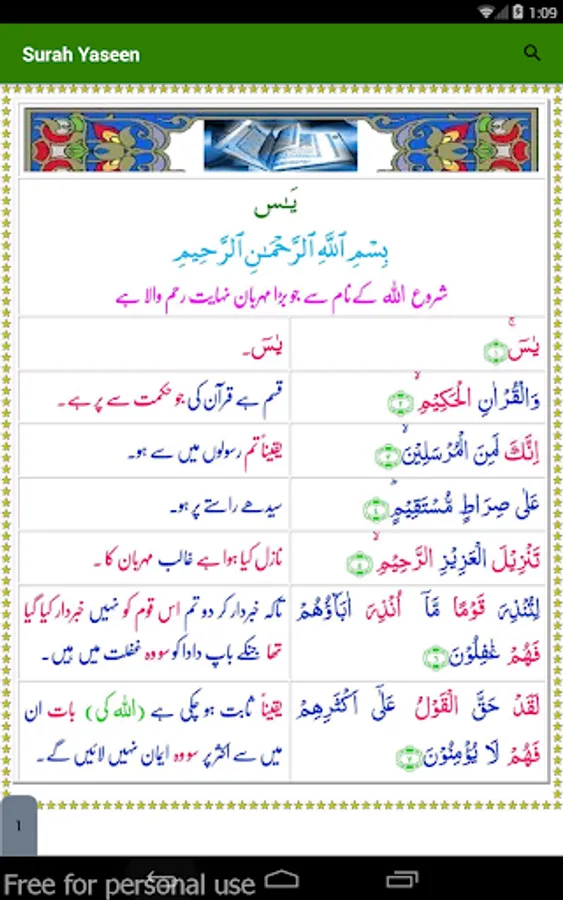 1:09
Surah Yaseen
يٰسٓ
بِسْمِ ٱللَّهِ ٱلرَّحْمَٰنِ ٱلرَّحِيمِ
شروع اللہ کے نام سے جو بڑا مہربان نہایت رحم والا ہے
يٰسٓ ۚ ﴿۱﴾
یٰسٓ۔
وَالْقُرْاٰنِ الْحَكِيْمِ ۙ ﴿۲﴾
قسم ہے قرآن کی جو حکمت سے پر ہے۔
اِنَّكَ لَمِنَ الْمُرْسَلِيْنَ ۙ ﴿۳﴾
یقیناً تم رسولوں میں سے ہو۔
عَلٰى صِرَاطٍ مُّسْتَقِيْمٍ ؕ ﴿۴﴾
سیدھے راستے پر ہو۔
تَنْزِيْلَ الْعَزِيْزِ الرَّحِيْمِ ۙ ﴿۵﴾
نازل کیا ہوا ہے غالب مہربان کا۔
لِتُنْذِرَ قَوْمًا مَّاۤ اُنْذِرَ اٰبَآؤُهُمْ
فَهُمْ غٰفِلُوْنَ ﴿۶﴾
تاکہ خبردار کر دو تم اس قوم کو نہیں خبردار کیا گیا
تھا جنکے باپ دادا کو سو وہ غفلت میں ہیں۔
لَقَدْ حَقَّ الْقَوْلُ عَلٰۤى اَكْثَرِهِمْ
فَهُمْ لَا يُؤْمِنُوْنَ ﴿۷﴾
یقیناً ثابت ہو چکی ہے (اللہ کی) بات ان
میں سے اکثر پر سو وہ ایمان نہیں لائیں گے۔
1
Free for personal use